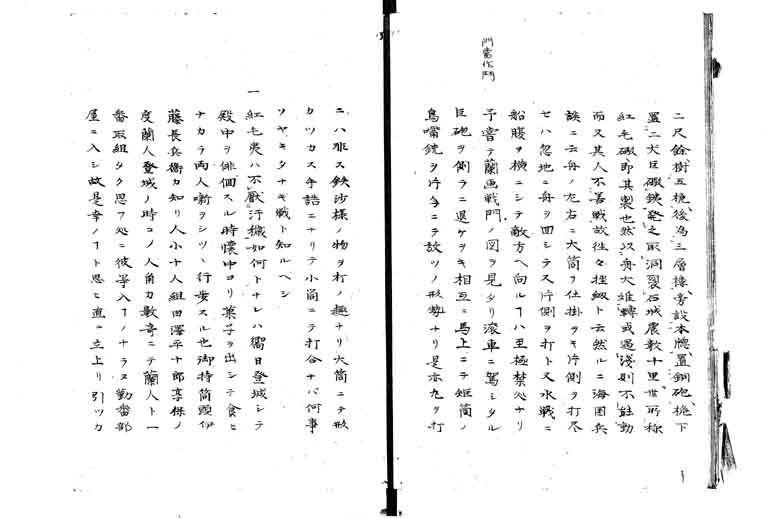 二尺餘樹五桅後為三層樓旁設本牕置銅砲桅下
置二丈巨礟鍭発之取洞裂石城震数十里世所称
紅毛礟即其製也然以舟大難轉或遇浅則不能動
而又其人不善戦故往々挫衂ト云然ルニ海国兵
談ニ云舟ノ左右ニ大筒ヲ仕掛ヲキ片側ヲ打尽
セハ忽地ニ舟ヲ回シテ又片側ヲ打ト又水戦ニ
船腹ヲ横ニシテ敵方ヘ向ル丁ハ至極禁忌ナリ
予嘗テ蘭画戦門ノ図ヲ見タリ滾車ニ駕シタル
巨砲ヲ側ラニ退ケヲキ相互ニ馬上ニテ短筒ノ
鳥嘴銃ヲ片手ニテ放ツノ形勢ナリ是亦丸ヲ打
門當作鬥
ニハ非ス鉄沙様ノ物ヲ打ノ趣ナリ大筒ニテ形
カツカス手詰ニナリテ小筒ニテ打合ナハ何事
ソヤキタナキ戦ト知ルヘシ
一紅毛夷ハ不厭汗穢如何トナレハ嚮日登城シテ
殿中ヲ俳個スル時懐中ヨリ菓子ヲ出シテ食ヒ
ナカラ両人噺ヲシツヽ行歩スル也御持筒頭伊
藤長兵衛カ知リ人小十人組田澤平十郎享保ノ
度蘭人登城ノ時コノ人角力数奇ニテ蘭人ト一
番取組タク思フ処ニ彼等入丁ノナラヌ勤番部
屋ニ入シ故是幸ノ丁ト思ヒ直ニ立上リ引ツカ